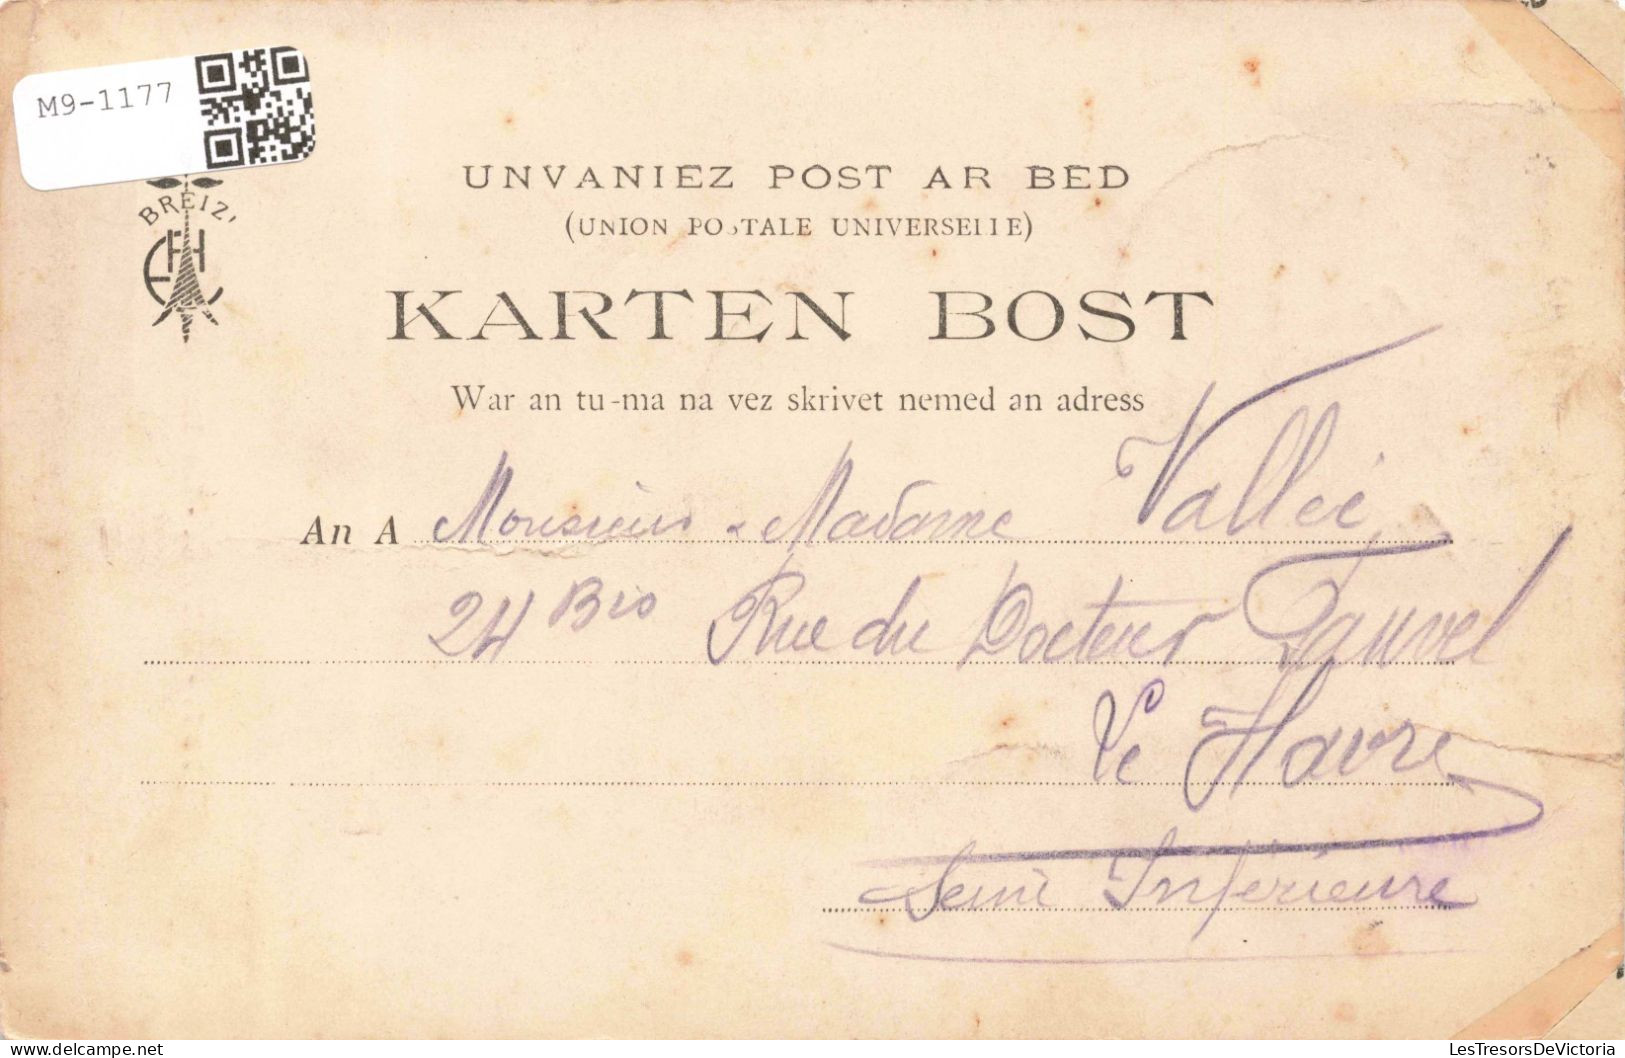 M9-1177
BREIZ
UNVANIEZ POST AR BED
(UNION POSTALE UNIVERSELLE)
KARTEN BOST
War an tu-ma na vez skrivet nemed an adress
An A Monsieur & Madame Vallée
24 Bis Rue du Docteur Gauvel
Le Havre
Seine Inférieure
LesTresorsDeVictoria